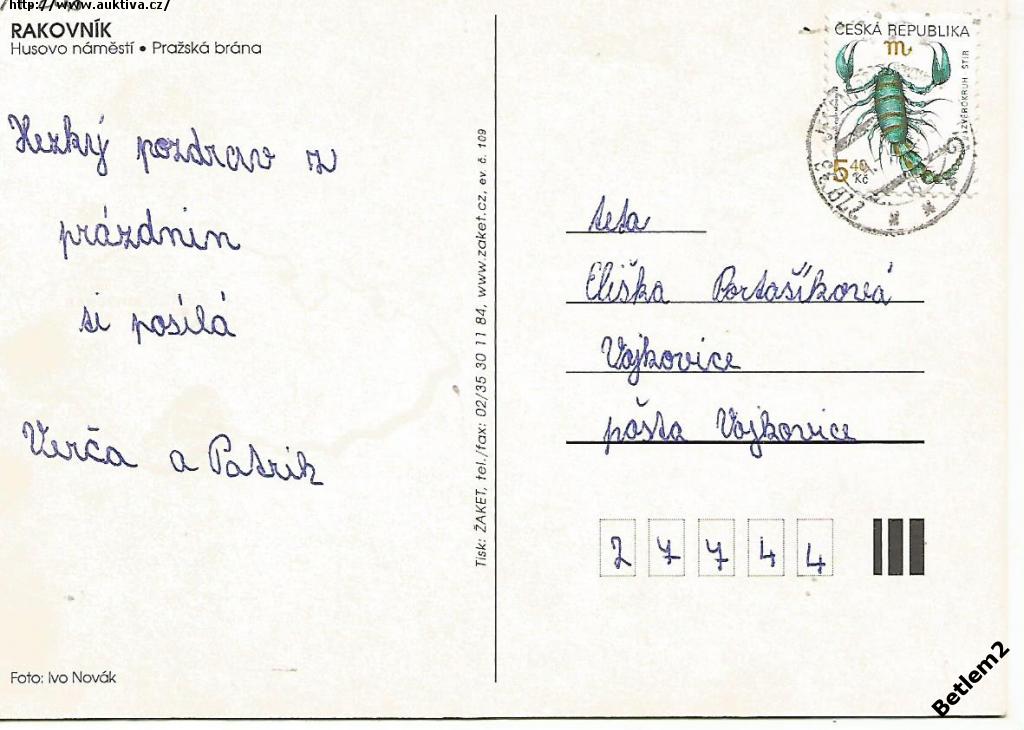 http://www.auktiva.cz/
RAKOVNÍK
Husovo náměstí • Pražská brána
Hezký pozdrav z
prázdnin
si posílá
Verča a Patrik
Foto: Ivo Novák
Tisk: ŽAKET, tel./fax: 02/35 30 11 84, www.zaket.cz, ev. č. 109
ČESKÁ REPUBLIKA
ZVĚROKRUH ŠTÍR
5 40 Kč
teta
Eliška Portašíková
Vojkovice
pošta Vojkovice
2 7 7 4 4
Betlem2